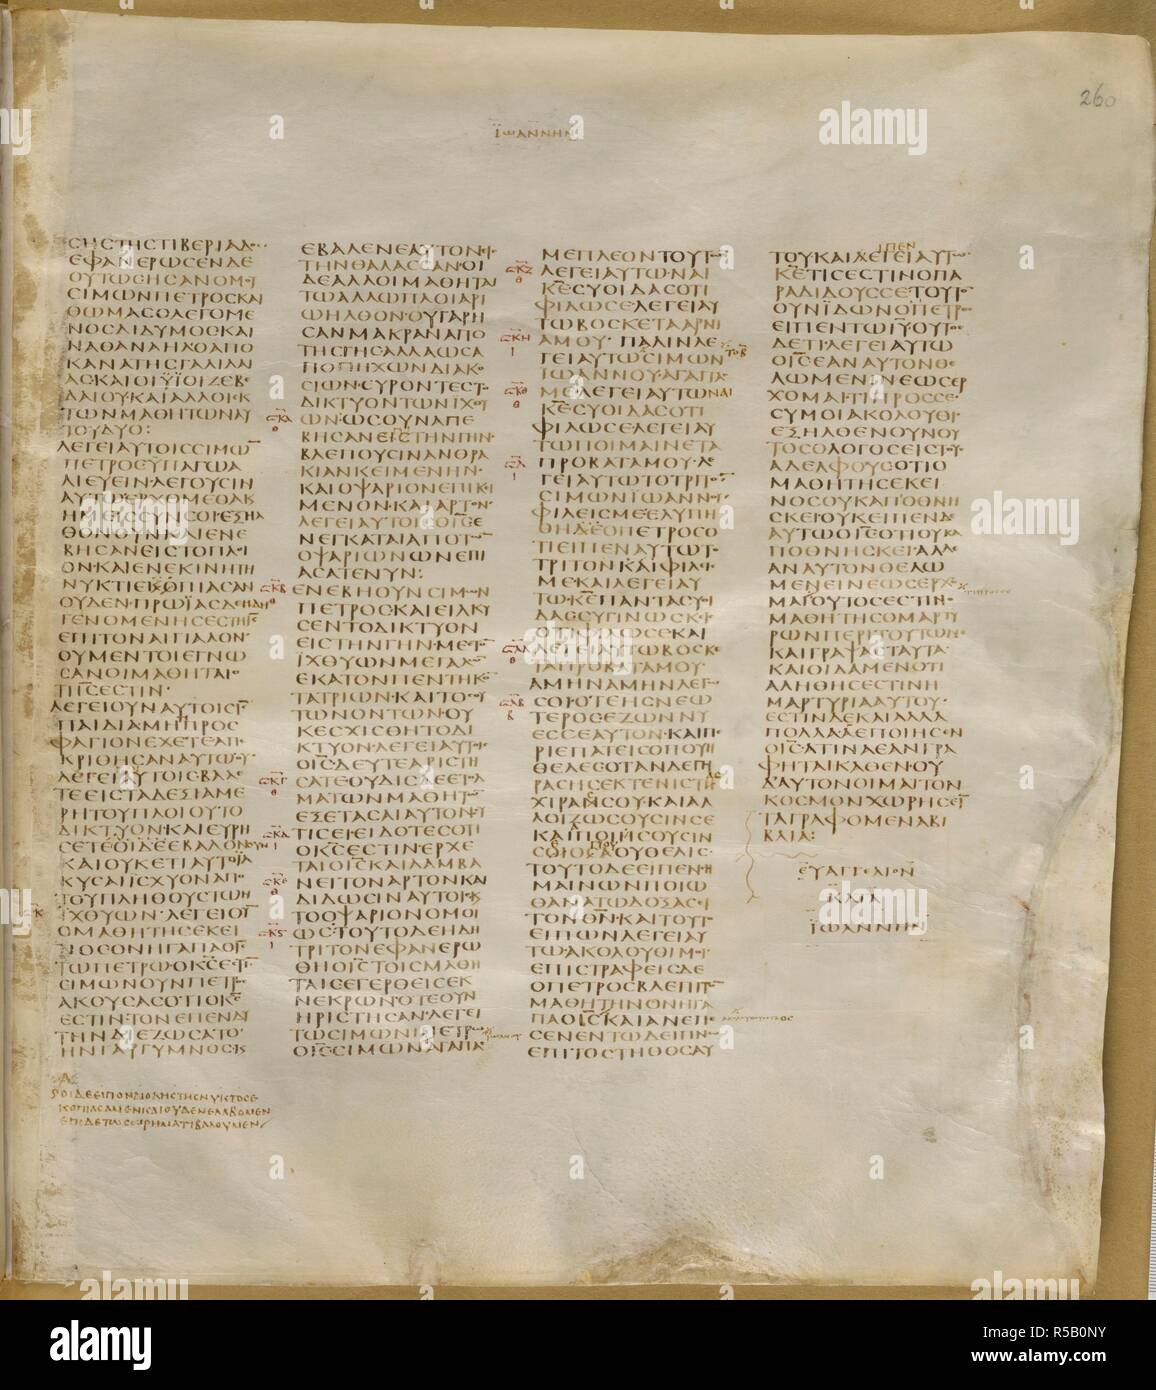 260
ΪΩΑΝΝΗΝ
ϹΗϹΤΗϹΤΙΒΕΡΙΑΔ
ΕΦΑΝΕΡΩϹΕΝΔΕ
ΟΥΤΩϹΗϹΑΝΟΜΟΥ
ϹΙΜΩΝΠΕΤΡΟϹΚΑΙ
ΘΩΜΑϹΟΛΕΓΟΜΕ
ΝΟϹΔΙΔΥΜΟϹΚΑΙ
ΝΑΘΑΝΑΗΛΟΑΠΟ
ΚΑΝΑΤΗϹΓΑΛΙΛΑΙ
ΑϹΚΑΙΟΙΫΪΟΙΖΕΒΕ
ΔΑΙΟΥ·ΚΑΙΑΛΛΟΙΕΚ
ΤΩΝΜΑΘΗΤΩΝΑΥ
ΤΟΥΔΥΟ:
ΛΕΓΕΙΑΥΤΟΙϹϹΙΜΩ̅
ΠΕΤΡΟϹΫΠΑΓΩΑ
ΛΙΕΥΕΙΝΛΕΓΟΥϹΙΝ
ΑΥΤΩΕΡΧΟΜΕΘΑΚΑΙ
ΗΜΕΙϹϹΥΝϹΟΙΕΞΗΛ
ΘΟΝΟΥΝΚΑΙΕΝΕ
ΒΗϹΑΝΕΙϹΤΟΠΛΟΙ
ΟΝ·ΚΑΙΕΝΕΚΙΝΗΤΗ
ΝΥΚΤΙΕΚΟΠΙΑϹΑΝ
ΟΥΔΕΝ·ΠΡΩΪΑϹΔΕΗΔΗ
ΓΕΝΟΜΕΝΗϹΕϹΤΗΙϹ
ΕΠΙΤΟΝΑΙΓΙΑΛΟΝ·
ΟΥΜΕΝΤΟΙΕΓΝΩ
ϹΑΝΟΙΜΑΘΗΤΑΙΟ
ΤΙΙ̅Ϲ̅ΕϹΤΙΝ·
ΛΕΓΕΙΟΥΝΑΥΤΟΙϹΙ̅Ϲ̅
ΠΑΙΔΙΑΜΗΠΡΟϹ
ΦΑΓΙΟΝΕΧΕΤΕΑΠΕ
ΚΡΙΘΗϹΑΝΑΥΤΩ·ΟΥ
ΛΕΓΕΙΑΥΤΟΙϹΒΑΛΕ
ΤΕΕΙϹΤΑΔΕΞΙΑΜΕ
ΡΗΤΟΥΠΛΟΙΟΥΤΟ
ΔΙΚΤΥΟΝ·ΚΑΙΕΥΡΗ
ϹΕΤΕΟΙΔΕΕΒΑΛΟΝΟΥΝ
ΚΑΙΟΥΚΕΤΙΑΥΤΟΕΛ
ΚΥϹΑΙΙϹΧΥΟΝΑΠΟ
ΤΟΥΠΛΗΘΟΥϹΤΩΝ
ΪΧΘΥΩΝ·ΛΕΓΕΙΟΥ̅
ΟΜΑΘΗΤΗϹΕΚΕΙ
ΝΟϹΟΝΗΓΑΠΑΟΙ̅Ϲ̅
ΤΩΠΕΤΡΩ·ΟΚ̅Ϲ̅ΕϹΤΙ̅
ϹΙΜΩΝΟΥΝΠΕΤΡΟϹ
ΑΚΟΥϹΑϹΟΤΙΟΚ̅Ϲ̅
ΕϹΤΙΝ·ΤΟΝΕΠΕΝΔΥ
ΤΗΝΔΙΕΖΩϹΑΤΟ·
ΗΝΓΑΡΓΥΜΝΟϹ·ΚΑΙ
ΕΒΑΛΕΝΕΑΥΤΟΝΕΙϹ
ΤΗΝΘΑΛΑϹϹΑΝ·ΟΙ
ΔΕΑΛΛΟΙΜΑΘΗΤΑΙ
ΤΩΑΛΛΩΠΛΟΙΑΡΙ
ΩΗΛΘΟΝ·ΟΥΓΑΡΗ
ϹΑΝΜΑΚΡΑΝΑΠΟ
ΤΗϹΓΗϹΑΛΛΑΩϹΑ
ΠΟΠΗΧΩΝΔΙΑΚΟ
ϹΙΩΝ·ϹΥΡΟΝΤΕϹΤΟ
ΔΙΚΤΥΟΝΤΩΝΪΧΘΥ
ΩΝ·ΩϹΟΥΝΑΠΕ
ΒΗϹΑΝΕΙϹΤΗΝΓΗΝ·
ΒΛΕΠΟΥϹΙΝΑΝΘΡΑ
ΚΙΑΝΚΕΙΜΕΝΗΝ·
ΚΑΙΟΨΑΡΙΟΝΕΠΙΚΕΙ
ΜΕΝΟΝ·ΚΑΙΑΡΤΟΝ·
ΛΕΓΕΙΑΥΤΟΙϹΟΙ̅Ϲ̅Ε
ΝΕΓΚΑΤΑΙΑΠΟΤΩ̅
ΟΨΑΡΙΩΝΩΝΕΠΙ
ΑϹΑΤΕΝΥΝ:
ΕΝΕΒΗΟΥΝϹΙΜΩΝ
ΠΕΤΡΟϹΚΑΙΕΙΛΚΥ
ϹΕΝΤΟΔΙΚΤΥΟΝ
ΕΙϹΤΗΝΓΗΝ·ΜΕϹΤΟ̅
ΪΧΘΥΩΝΜΕΓΑΛΩ̅
ΕΚΑΤΟΝΠΕΝΤΗΚΟ̅
ΤΑΤΡΙΩΝ·ΚΑΙΤΟϹΟΥ
ΤΩΝΟΝΤΩΝ·ΟΥ
ΚΕϹΧΙϹΘΗΤΟΔΙ
ΚΤΥΟΝ·ΛΕΓΕΙΑΥΤΟΙϹ
ΟΙ̅Ϲ̅ΔΕΥΤΕΑΡΙϹΤΗ
ϹΑΤΕ·ΟΥΔΙϹΔΕΕΤΟΛ
ΜΑΤΩΝΜΑΘΗΤΩ̅
ΕΞΕΤΑϹΑΙΑΥΤΟΝ·Ϲ
ΤΙϹΕΙ·ΕΙΔΟΤΕϹΟΤΙ
ΟΚ̅Ϲ̅ΕϹΤΙΝ·ΕΡΧΕ
ΤΑΙΟΙ̅Ϲ̅ΚΑΙΛΑΜΒΑ
ΝΕΙΤΟΝΑΡΤΟΝΚΑΙ
ΔΙΔΩϹΙΝΑΥΤΟΙϹ·Κ
ΤΟΟΨΑΡΙΟΝΟΜΟΙ
ΩϹ·ΤΟΥΤΟΔΕΗΔΗ
ΤΡΙΤΟΝΕΦΑΝΕΡΩ
ΘΗΟΙ̅Ϲ̅ΤΟΙϹΜΑΘΗ
ΤΑΙϹΕΓΕΡΘΕΙϹΕΚ
ΝΕΚΡΩΝ·ΟΤΕΟΥΝ
ΗΡΙϹΤΗϹΑΝ·ΛΕΓΕΙ
ΤΩϹΙΜΩΝΙΠΕΤΡΩ
ΟΙ̅Ϲ̅ϹΙΜΩΝΑΓΑΠΑϹ
ΜΕΠΛΕΟΝΤΟΥΤΩ̅
ΛΕΓΕΙΑΥΤΩ·ΝΑΙ
Κ̅Ε̅ϹΥΟΙΔΑϹΟΤΙ
ΦΙΛΩϹΕ·ΛΕΓΕΙΑΥ
ΤΩΒΟϹΚΕΤΑΑΡΝΙ
ΑΜΟΥ·ΠΑΛΙΝΛΕ
ΓΕΙΑΥΤΩϹΙΜΩΝ
ΙΩΑΝΝΟΥ·ΑΓΑΠΑϹ
ΜΕ·ΛΕΓΕΙΑΥΤΩΝΑΙ
Κ̅Ε̅ϹΥΟΙΔΑϹΟΤΙ
ΦΙΛΩϹΕ·ΛΕΓΕΙΑΥ
ΤΩΠΟΙΜΑΙΝΕΤΑ
ΠΡΟΒΑΤΑΜΟΥ·ΛΕ
ΓΕΙΑΥΤΩΤΟΤΡΙΤΟ̅
ϹΙΜΩΝΙΩΑΝΝΟΥ
ΦΙΛΕΙϹΜΕΕΛΥΠΗ
ΘΗΔΕΟΠΕΤΡΟϹΟ
ΤΙΕΙΠΕΝΑΥΤΩΤΟ
ΤΡΙΤΟΝΚΑΙΦΙΛΕΙϹ
ΜΕ·ΚΑΙΛΕΓΕΙΑΥ
ΤΩ·Κ̅Ε̅ΠΑΝΤΑϹΥΟΙ
ΔΑϹϹΥΓΙΝΩϹΚΙϹ
ΟΤΙΦΙΛΩϹΕΚΑΙ
ΛΕΓΕΙΑΥΤΩΒΟϹΚΕ
ΤΑΠΡΟΒΑΤΑΜΟΥ
ΑΜΗΝΑΜΗΝΛΕΓΩ
ϹΟΙΟΤΕΗϹΝΕΩ
ΤΕΡΟϹΕΖΩΝΝΥ
ΕϹϹΕΑΥΤΟΝ·ΚΑΙΠΕ
ΡΙΕΠΑΤΕΙϹΟΠΟΥΗ
ΘΕΛΕϹΟΤΑΝΔΕΓΗ
ΡΑϹΗϹΕΚΤΕΝΙϹΤΗ̅
ΧΙΡΑϹΟΥ·ΚΑΙΑΛ
ΛΟΙΖΩϹΟΥϹΙΝϹΕ
ΚΑΙΠΟΙΗϹΟΥϹΙΝ
ϹΟΙΟϹΑΟΥΘΕΛΙϹ·
ΤΟΥΤΟΔΕΕΙΠΕΝ·ϹΗ
ΜΑΙΝΩΝΠΟΙΩ
ΘΑΝΑΤΩΔΟΞΑϹΙ
ΤΟΝΘ̅Ν̅·ΚΑΙΤΟΥΤΟ
ΕΙΠΩΝΛΕΓΕΙΑΥ
ΤΩ·ΑΚΟΛΟΥΘΙΜΟΙ
ΕΠΙϹΤΡΑΦΕΙϹΔΕ
ΟΠΕΤΡΟϹΒΛΕΠΙΤΟ̅
ΜΑΘΗΤΗΝΟΝΗΓΑ
ΠΑΟΙ̅Ϲ̅ΚΑΙΑΝΕΠΕ
ϹΕΝΕΝΤΩΔΕΙΠΝΩ
ΕΠΙΤΟϹΤΗΘΟϹΑΥ
ΤΟΥΚΑΙΛΕΓΕΙΑΥΤΩ
Κ̅Ε̅ΤΙϹΕϹΤΙΝΟΠΑ
ΡΑΔΙΔΟΥϹϹΕΤΟΥΤΟ̅
ΟΥΝΙΔΩΝΟΠΕΤΡΟϹ
ΕΙΠΕΝΤΩΙ̅Υ̅ΟΥΤΟϹ
ΔΕΤΙ·ΛΕΓΕΙΑΥΤΩ
ΟΙ̅Ϲ̅ΕΑΝΑΥΤΟΝΘΕ
ΛΩΜΕΝΙΝΕΩϹΕΡ
ΧΟΜΑΙ·ΤΙΠΡΟϹϹΕ·
ϹΥΜΟΙΑΚΟΛΟΥΘΙ·
ΕΞΗΛΘΕΝΟΥΝΟΥ
ΤΟϹΟΛΟΓΟϹΕΙϹΤΟΥϹ
ΑΔΕΛΦΟΥϹΟΤΙΟ
ΜΑΘΗΤΗϹΕΚΕΙ
ΝΟϹΟΥΚΑΠΟΘΝΗ
ϹΚΕΙ·ΟΥΚΕΙΠΕΝΔΕ
ΑΥΤΩΟΙ̅Ϲ̅ΟΤΙΟΥΚΑ
ΠΟΘΝΗϹΚΕΙ·ΑΛΛΕ
ΑΝΑΥΤΟΝΘΕΛΩ
ΜΕΝΕΙΝΕΩϹΕΡΧΟ
ΜΑΙ·ΟΥΤΟϹΕϹΤΙΝΟ
ΜΑΘΗΤΗϹΟΜΑΡΤΥ
ΡΩΝΠΕΡΙΤΟΥΤΩΝ·
ΚΑΙΓΡΑΨΑϹΤΑΥΤΑ·
ΚΑΙΟΙΔΑΜΕΝΟΤΙ
ΑΛΗΘΗϹΕϹΤΙΝΗ
ΜΑΡΤΥΡΙΑΑΥΤΟΥ·
ΕϹΤΙΝΔΕΚΑΙΑΛΛΑ
ΠΟΛΛΑΑΕΠΟΙΗϹΕΝ
ΟΙ̅Ϲ̅ΑΤΙΝΑΕΑΝΓΡΑ
ΦΗΤΑΙΚΑΘΕΝΟΥ
ΔΑΥΤΟΝΟΙΜΑΙΤΟΝ
ΚΟϹΜΟΝΧΩΡΗϹΕΙ̅
ΤΑΓΡΑΦΟΜΕΝΑΒΙ
ΒΛΙΑ:
ΕΥΑΓΓΕΛΙΟΝ
ΚΑΤΑ
ΪΩΑΝΝΗΝ
alamy
Image ID: R5B0NY
www.alamy.com